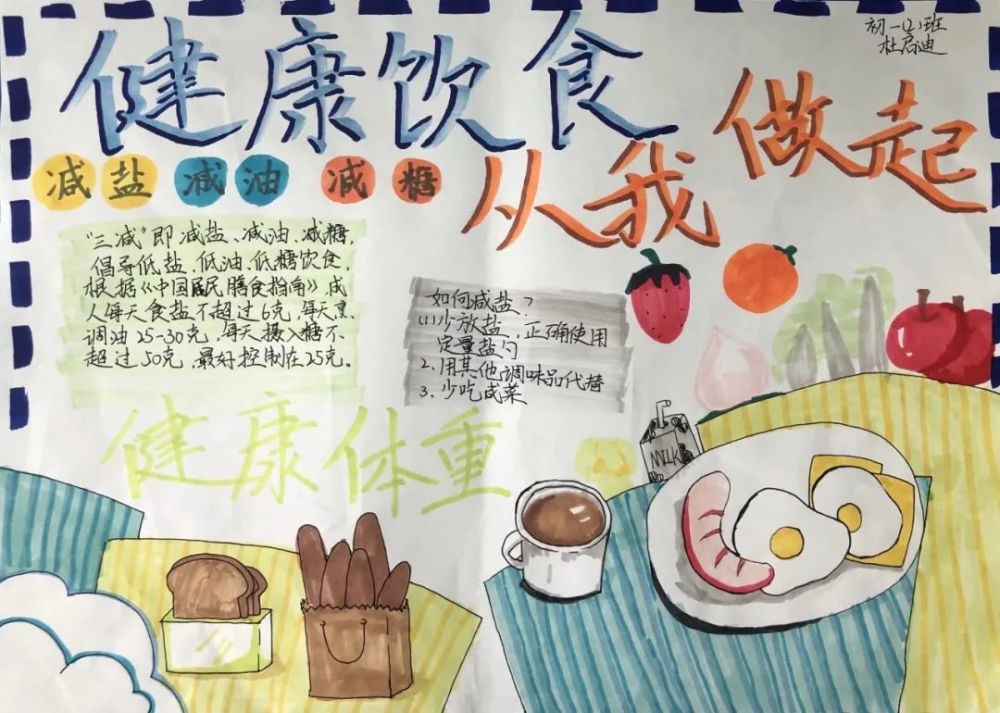 健康饮食
初一(2)班
杜启迪
从我做起
减盐 减油 减糖
"三减"即减盐、减油、减糖,
倡导低盐、低油、低糖饮食,
根据《中国居民膳食指南》成
人每天食盐不超过6克,每天烹
调油25-30克,每天摄入糖不
超过50克,最好控制在25克。
如何减盐?
(1)少放盐,正确使用
定量盐勺
2、用其他调味品代替
3、少吃咸菜
健康体重
MILK